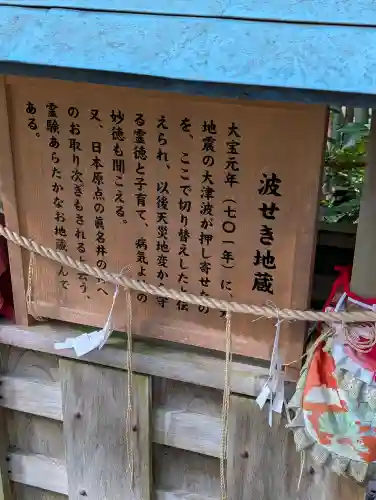 波せき地蔵
大宝元年（七〇一年）に、大
地震の大津波が押し寄せたの
を、ここで切り替えしたと伝
えられ、以後天災地変から守
る霊徳と子育て、病気よけの
妙徳も聞こえる。
又、日本原点の眞名井の水へ
のお取り次ぎもされると云う、
霊験あらたかなお地蔵さんで
ある。